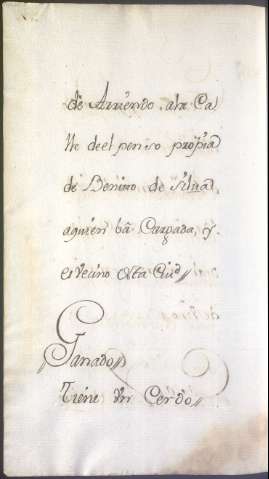 de Arriendo, ala Ca
lle deel penso propia
de Benito de Silva,
aquien bâ Cargada, y
es Vecino desta Ciud//
Ganado//
Tiene Un Cerdo//